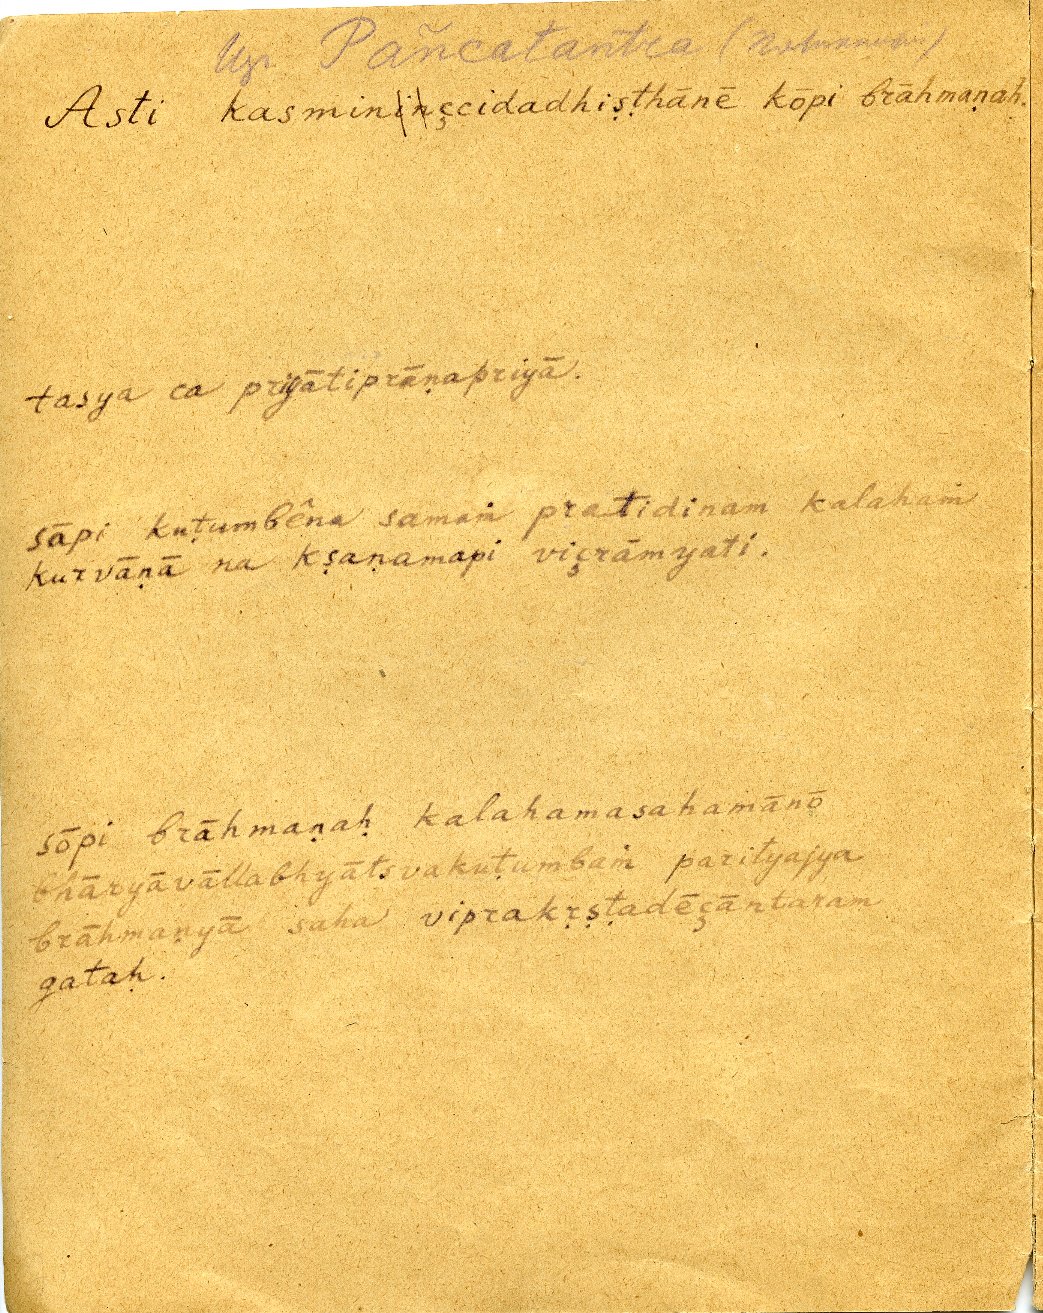 Изъ Pañcatantra
Asti kasmininçcidadhiṣṭhānē kōpi brāhmaṇaḥ.
tasya ca priyātiprāṇapriyā.
sāpi kuṭumbêna samaṁ pratidinam kalahaṁ
kurvāṇā na kṣaṇamapi viçrāmyati.
sōpi brāhmaṇaḥ kalahamasahamānō
bhāryāvāllabhyātsvakuṭumbaṁ parityajya
brāhmaṇyā saha viprakṛṣṭadēçāntaram
gataḥ.